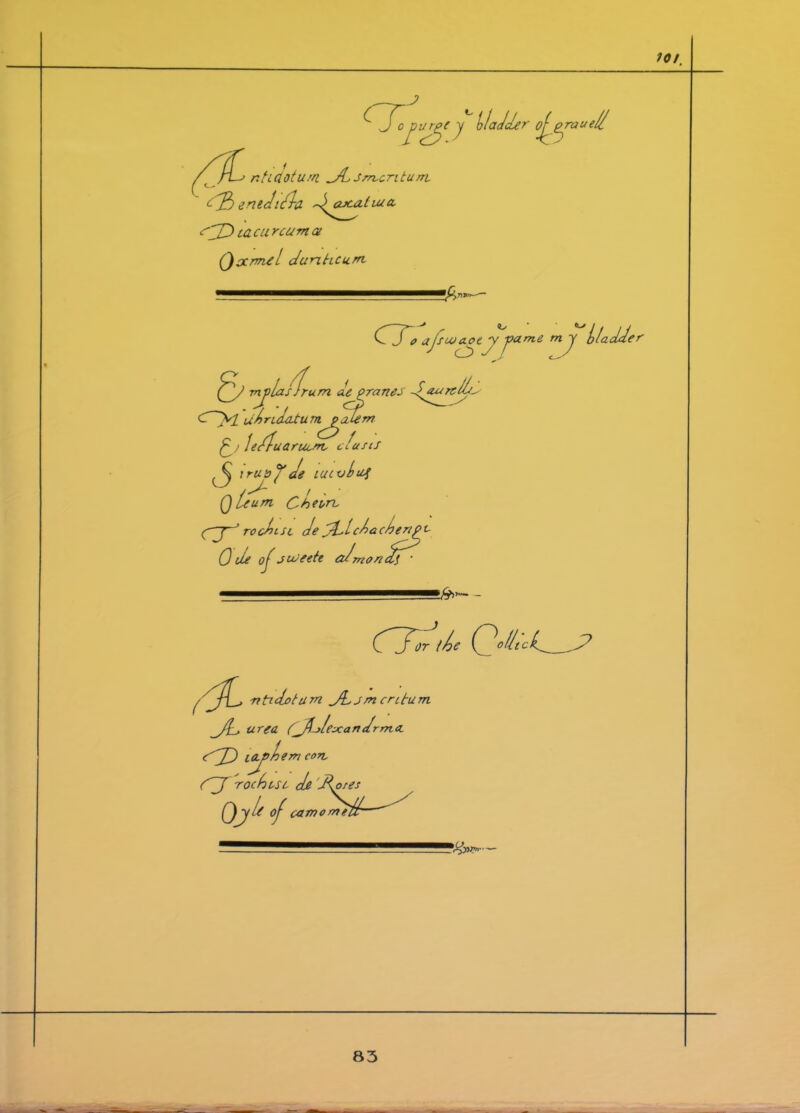 101.
To purge yͤ bladder of grauell
Antidotum Asmcritum
Benedicta Laxatiua
Diacurcumæ
Oxmel diureticum
To asswage yͤ pame in yͤ bladder
Emplastrum de granes Laurelli
Mithridatum galem
Electuarium clasis
Sirups de
Oleum Cheiri
Trochisi de Alchachengi
Oile of sweete almonds
For the Collick
Antidotum Asmcritum
Aurea Alexandrina
Diaphemcon
Trochisi de Roses
Oyle of camomell
83